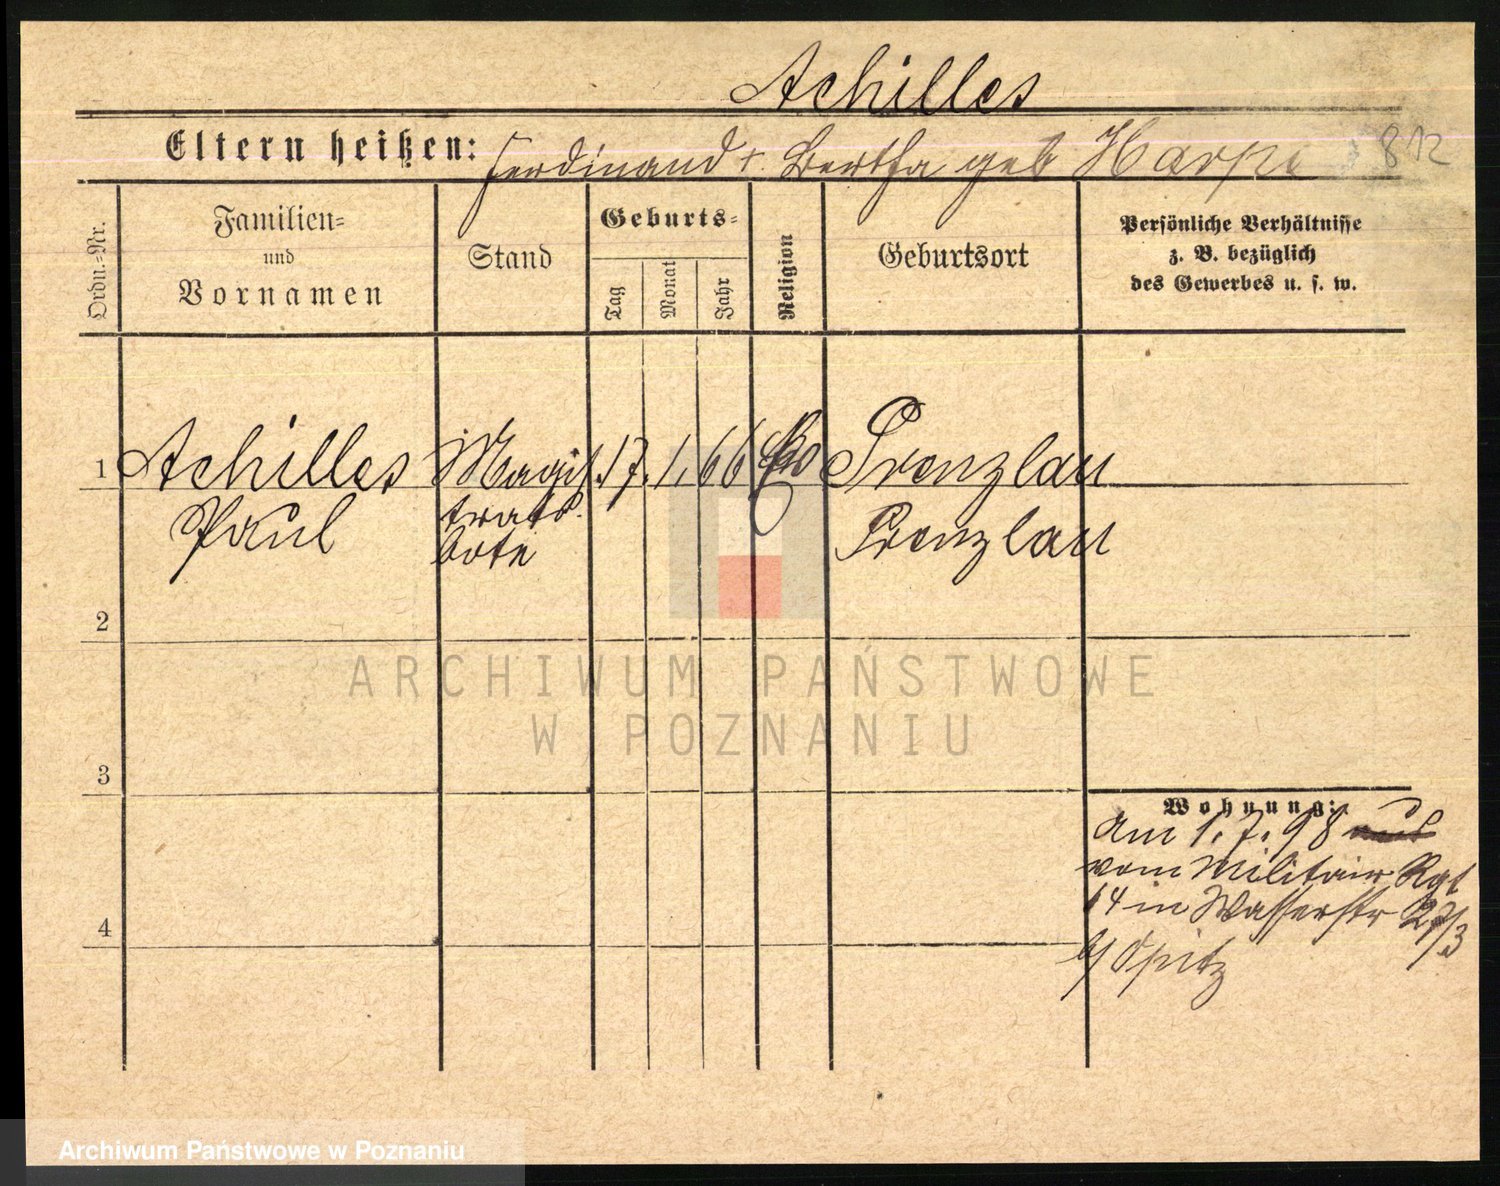 Achilles
Eltern heißen: Ferdinand + Bertha geb Harpe 812
Ordn.-Nr.
Familien-
und
Vornamen
Stand
Geburts-
Tag
Monat
Jahr
Religion
Geburtsort
Persönliche Verhältnisse
z. B. bezüglich
des Gewerbes u. s. w.
1 Achilles Magis. 17. 1. 66 Prenzlau
Paul trats. Prenzlau
bote
2
ARCHIWUM PAŃSTWOWE
W POZNANIU
3
Wohnung:
am 1. 7. 98 aus
vom Militair Rgt
14 in Wasserstr 27/3
4
b/ Opitz
Archiwum Państwowe w Poznaniu